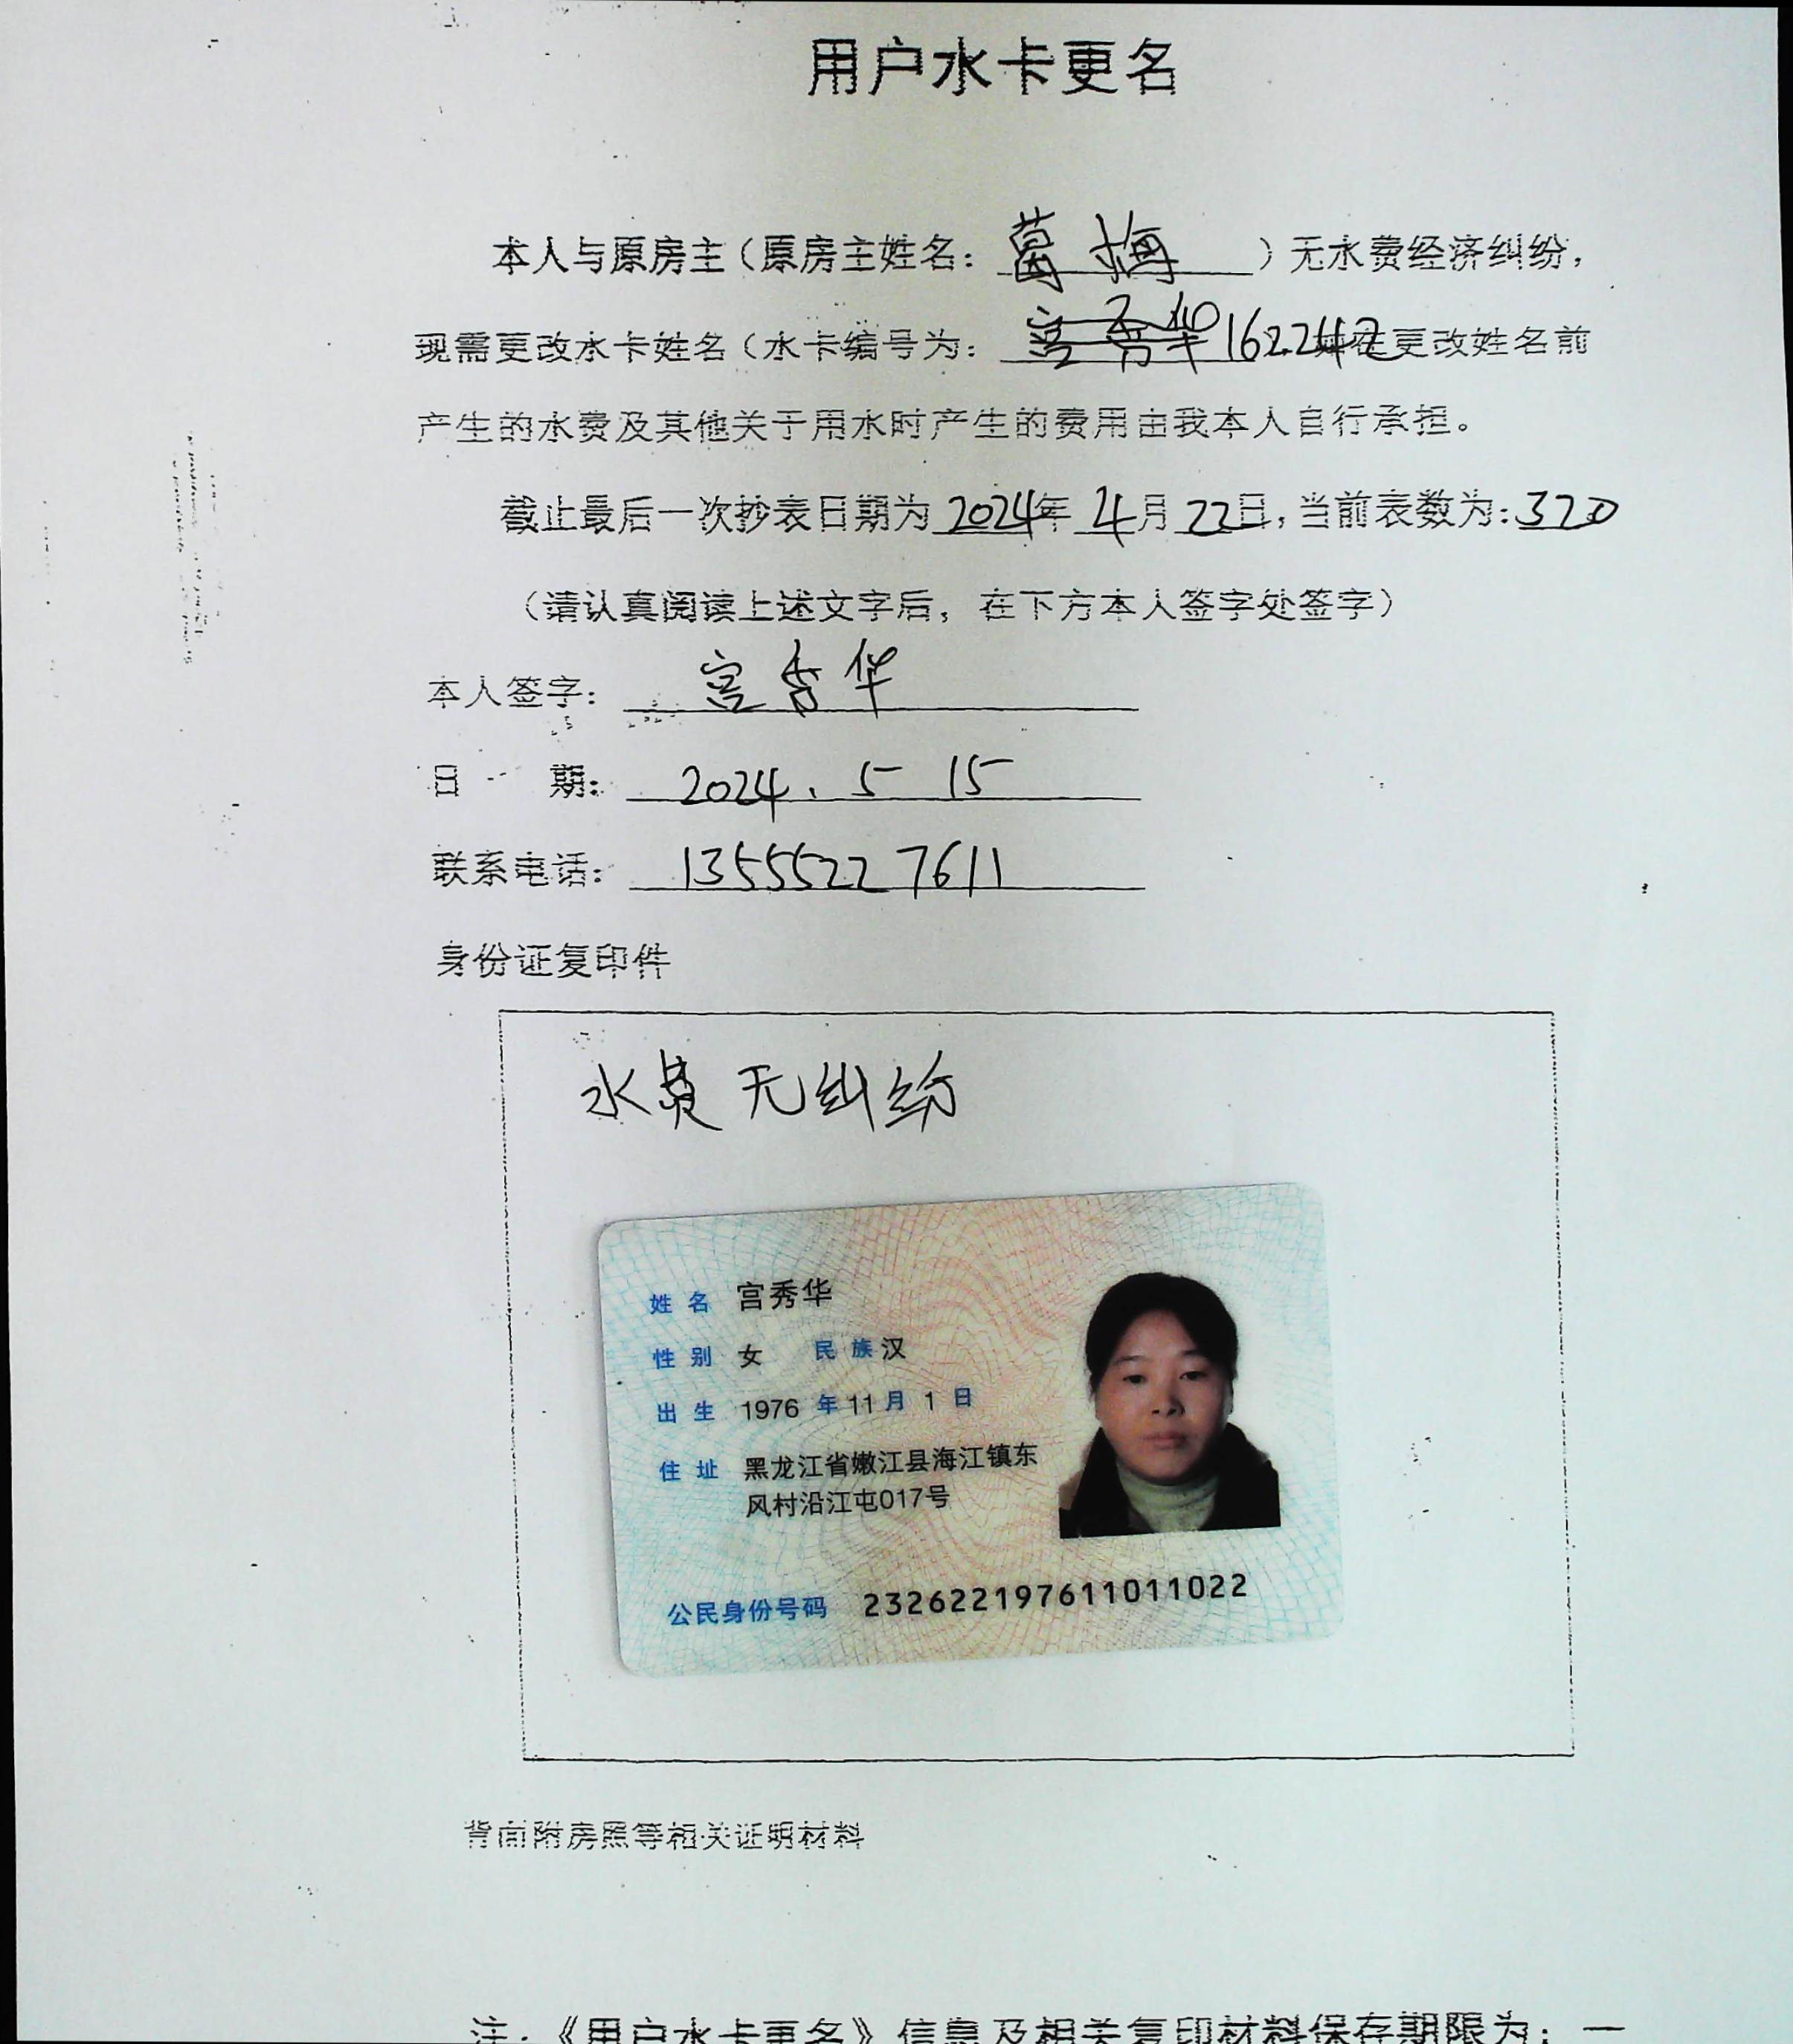 用户水卡更名
本人与原房主（原房主姓名：葛梅）无水费经济纠纷，
现需更改水卡姓名（水卡编号为：宫秀华162242在更改姓名前
产生的水费及其他关于用水时产生的费用由我本人自行承担。
截止最后一次抄表日期为2024年4月22日，当前表数为：320
（请认真阅读上述文字后，在下方本人签字处签字）
本人签字：宫秀华
日期：2024.5 15
联系电话：13555227611
身份证复印件
水费无纠纷
姓名 宫秀华
性别 女 民族 汉
出生 1976年11月1日
住址 黑龙江省嫩江县海江镇东
风村沿江屯017号
公民身份号码 232622197611011022
背面附房照等相关证明材料
注：《用户水卡更名》信息及相关复印材料保存期限为：一